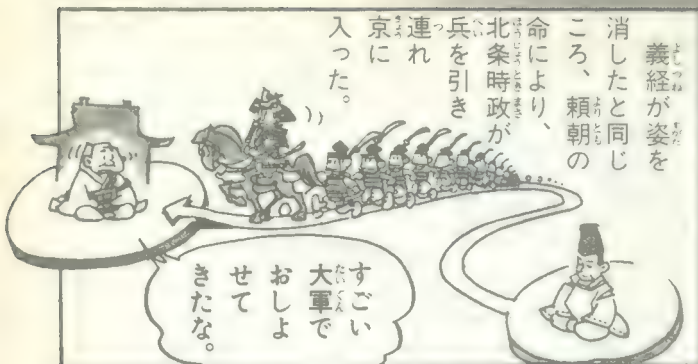 義経が姿を
消したと同じ
ころ、頼朝の
命により、
北条時政が
兵を引き
連れ
京に
入った。
すごい
大軍で
おしよ
せて
きたな。